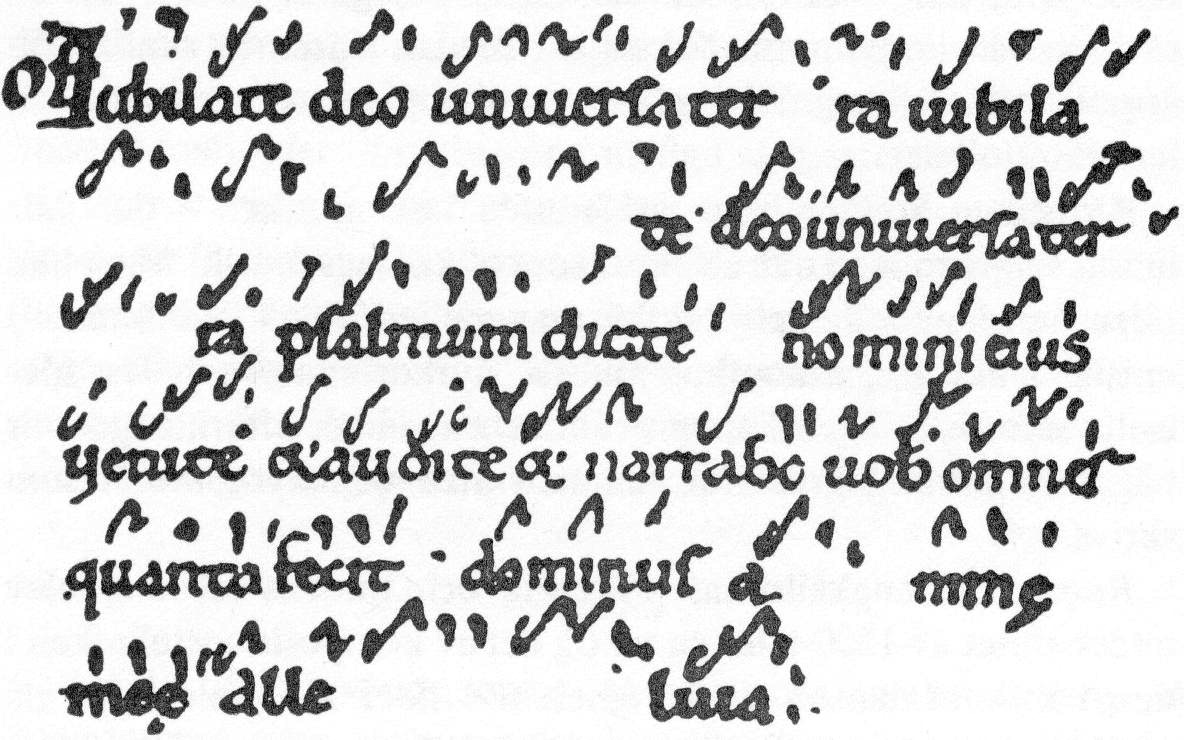 Of Iubilate deo uniuersa ter ra iubila
te deo uniuersa ter
ra psalmum dicite nomini eius
uenite & audite & narrabo uob omnes
quanta fecit dominus anime
meę alle luia